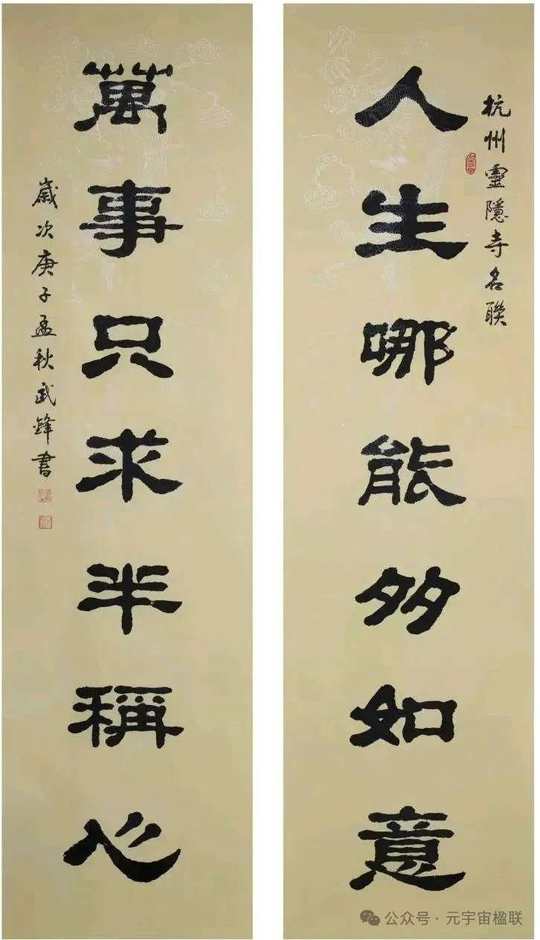 杭州靈隱寺名聯
人生哪能多如意
萬事只求半稱心
歲次庚子孟秋武鋒書
公众号·元宇宙楹联